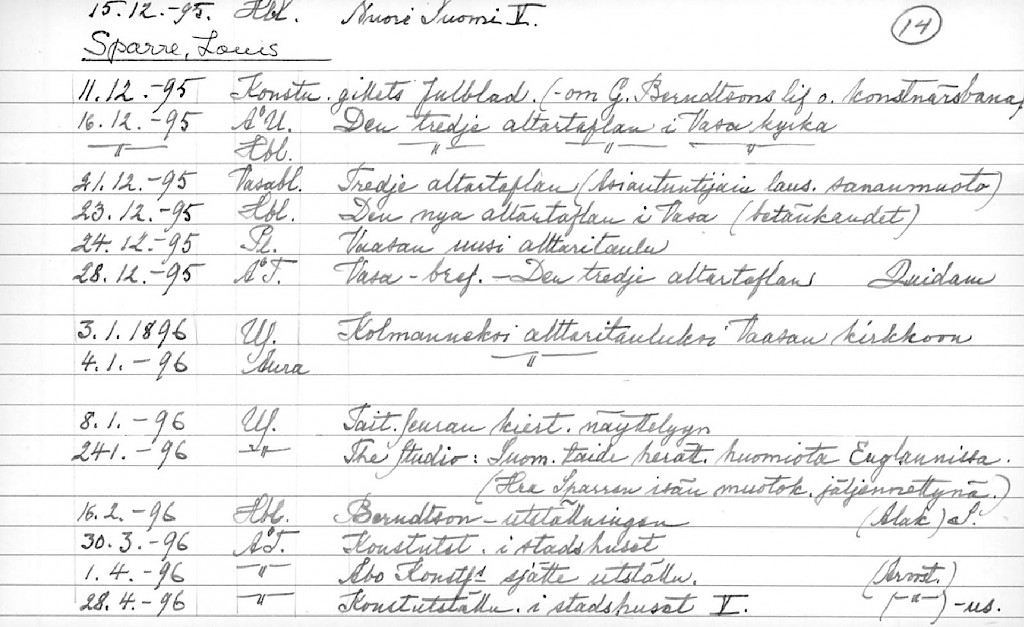 15.12.-95. Hbl. Nuori Suomi V. 14
Sparre, Louis
11.12.-95 Konstn. gillets Julblad. (-om G. Berndtsons lif o. konstnärsbana)
16.12.-95 Å.U. Den tredje altartaflan i Vasa kyrka
-"- Hbl. -"- -"- -"-
21.12.-95 Vasabl. Tredje altartaflan (Asiantuntijain laus. sananmuoto)
23.12.-95 Hbl. Den nya altartaflan i Vasa (betänkandet)
24.12.-95 Pl. Vaasan uusi alttaritaulu
28.12.-95 Å.T. Vasa-bref. - Den tredje altartaflan Quidam
3.1.1896 U.S. Kolmanneksi alttaritauluksi Vaasan kirkkoon
4.1.-96 Aura -"-
8.1.-96 U.S. Tait.seuran kiert. näyttelyyn
24.1.-96 -"- The Studio: Suom. taide herätt. huomiota Englannissa.
(Hra Sparren isän muotok. jäljennettynä.)
16.2.-96 Hbl. Berndtson-utställningen (Alak.)
30.3.-96 Å.T. Konstutst. i stadshuset
1.4.-96 -"- Åbo Konstf. sjätte utställn. (Arvost.)
28.4.-96 -"- Konstutställn. i stadshuset V. (-"-) -us.